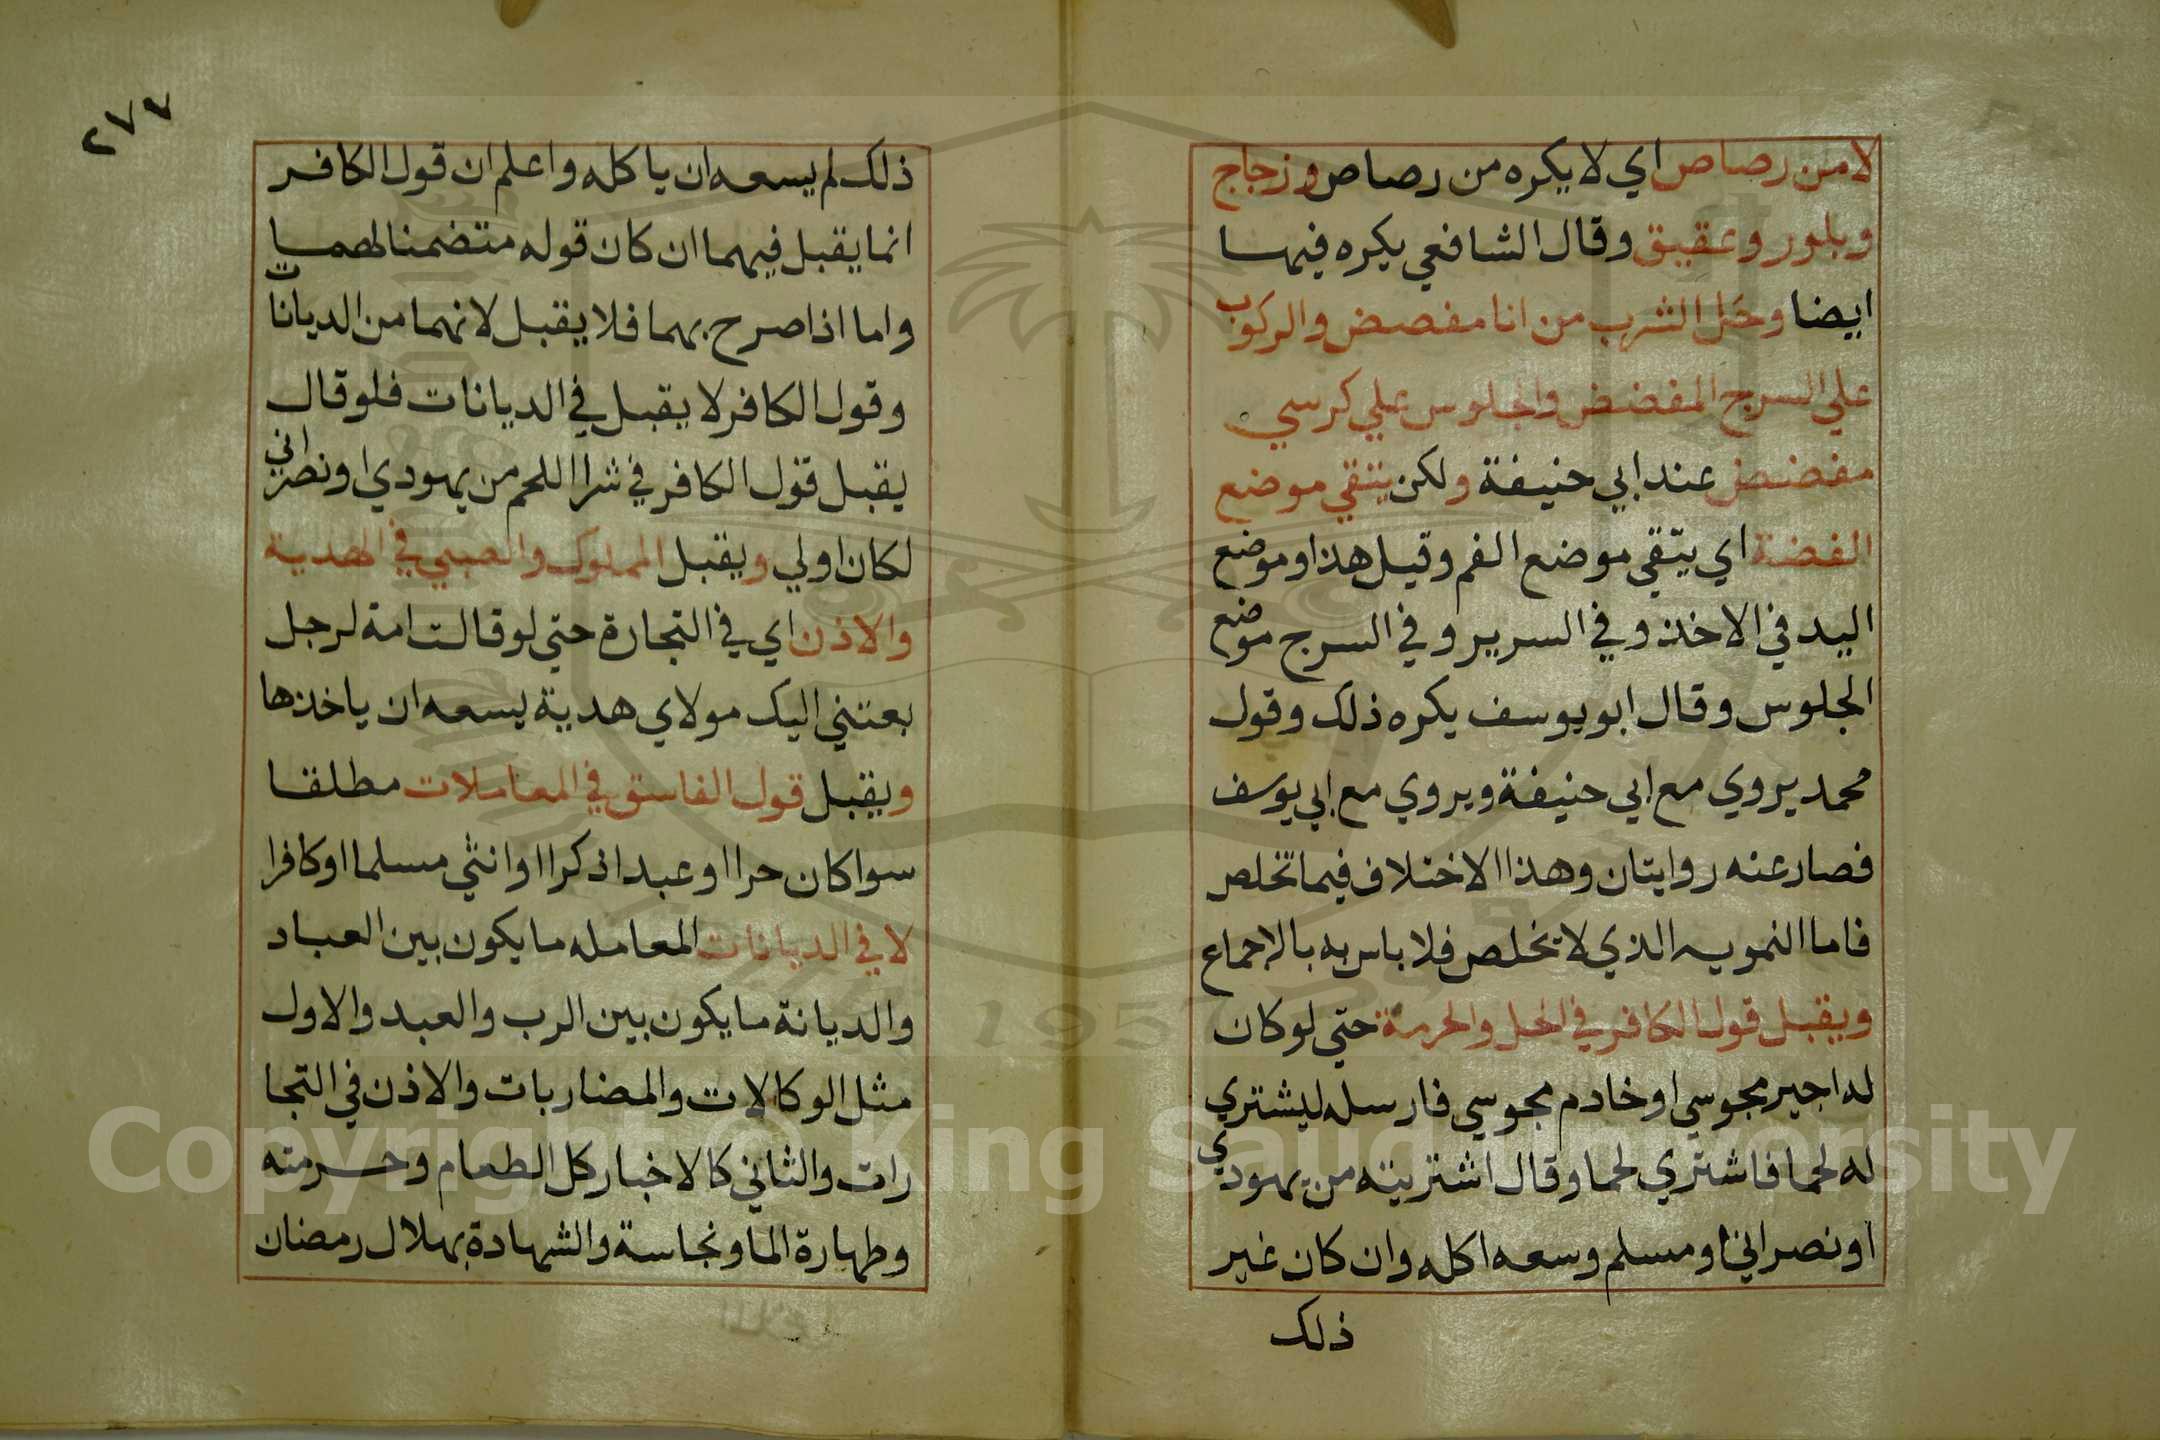 لا من رصاص اي لا يكره من رصاص وزجاج
وبلور وعقيق وقال الشافعي يكره فيها
ايضا وحل الشرب من انا مفضض والركوب
علي السرج المفضض والجلوس علي كرسي
مفضض عند ابي حنيفة ولكن يتقي موضع
الفضة اي يتقي موضع الفم وقيل هذا وموضع
اليد في الاخذ وفي السرير وفي السرج موضع
الجلوس وقال ابو يوسف يكره ذلك وقول
محمد يروي مع ابي حنيفة ويروي مع ابي يوسف
فصار عنه روايتان وهذا الاختلاف فيما تخلص
فاما التمويه الذي لا يخلص فلا باس به بالاجماع
ويقبل قول الكافر في الحل والحرمة حتي لو كان
له اجير مجوسي او خادم مجوسي فارسله ليشتري
له لحما فاشتري لحما وقال اشتريته من يهودي
او نصراني او مسلم وسعه اكله وان كان غير
ذلك
٢٧٧
ذلك لم يسعه ان ياكله واعلم ان قول الكافر
انما يقبل فيهما ان كان قوله متضمنا لهما
واما اذا صرح بهما فلا يقبل لانهما من الديانات
وقول الكافر لا يقبل في الديانات فلو قال
يقبل قول الكافر في شرا اللحم من يهودي او نصراني
لكان اولي ويقبل المملوك والصبي في الهدية
والاذن اي في التجارة حتي لو قالت امة لرجل
بعثني اليك مولاي هدية يسعه ان ياخذها
ويقبل قول الفاسق في المعاملات مطلقا
سوا كان حرا او عبدا ذكرا او انثي مسلما او كافرا
لا في الديانات المعامله ما يكون بين العباد
والديانة ما يكون بين الرب والعبد والاول
مثل الوكالات والمضاربات والاذن في التجا
رات والثاني كالاخبار كل الطعام وحرمته
وطهارة الما ونجاسة والشهادة بهلال رمضان
1957
Copyright © King Saud University